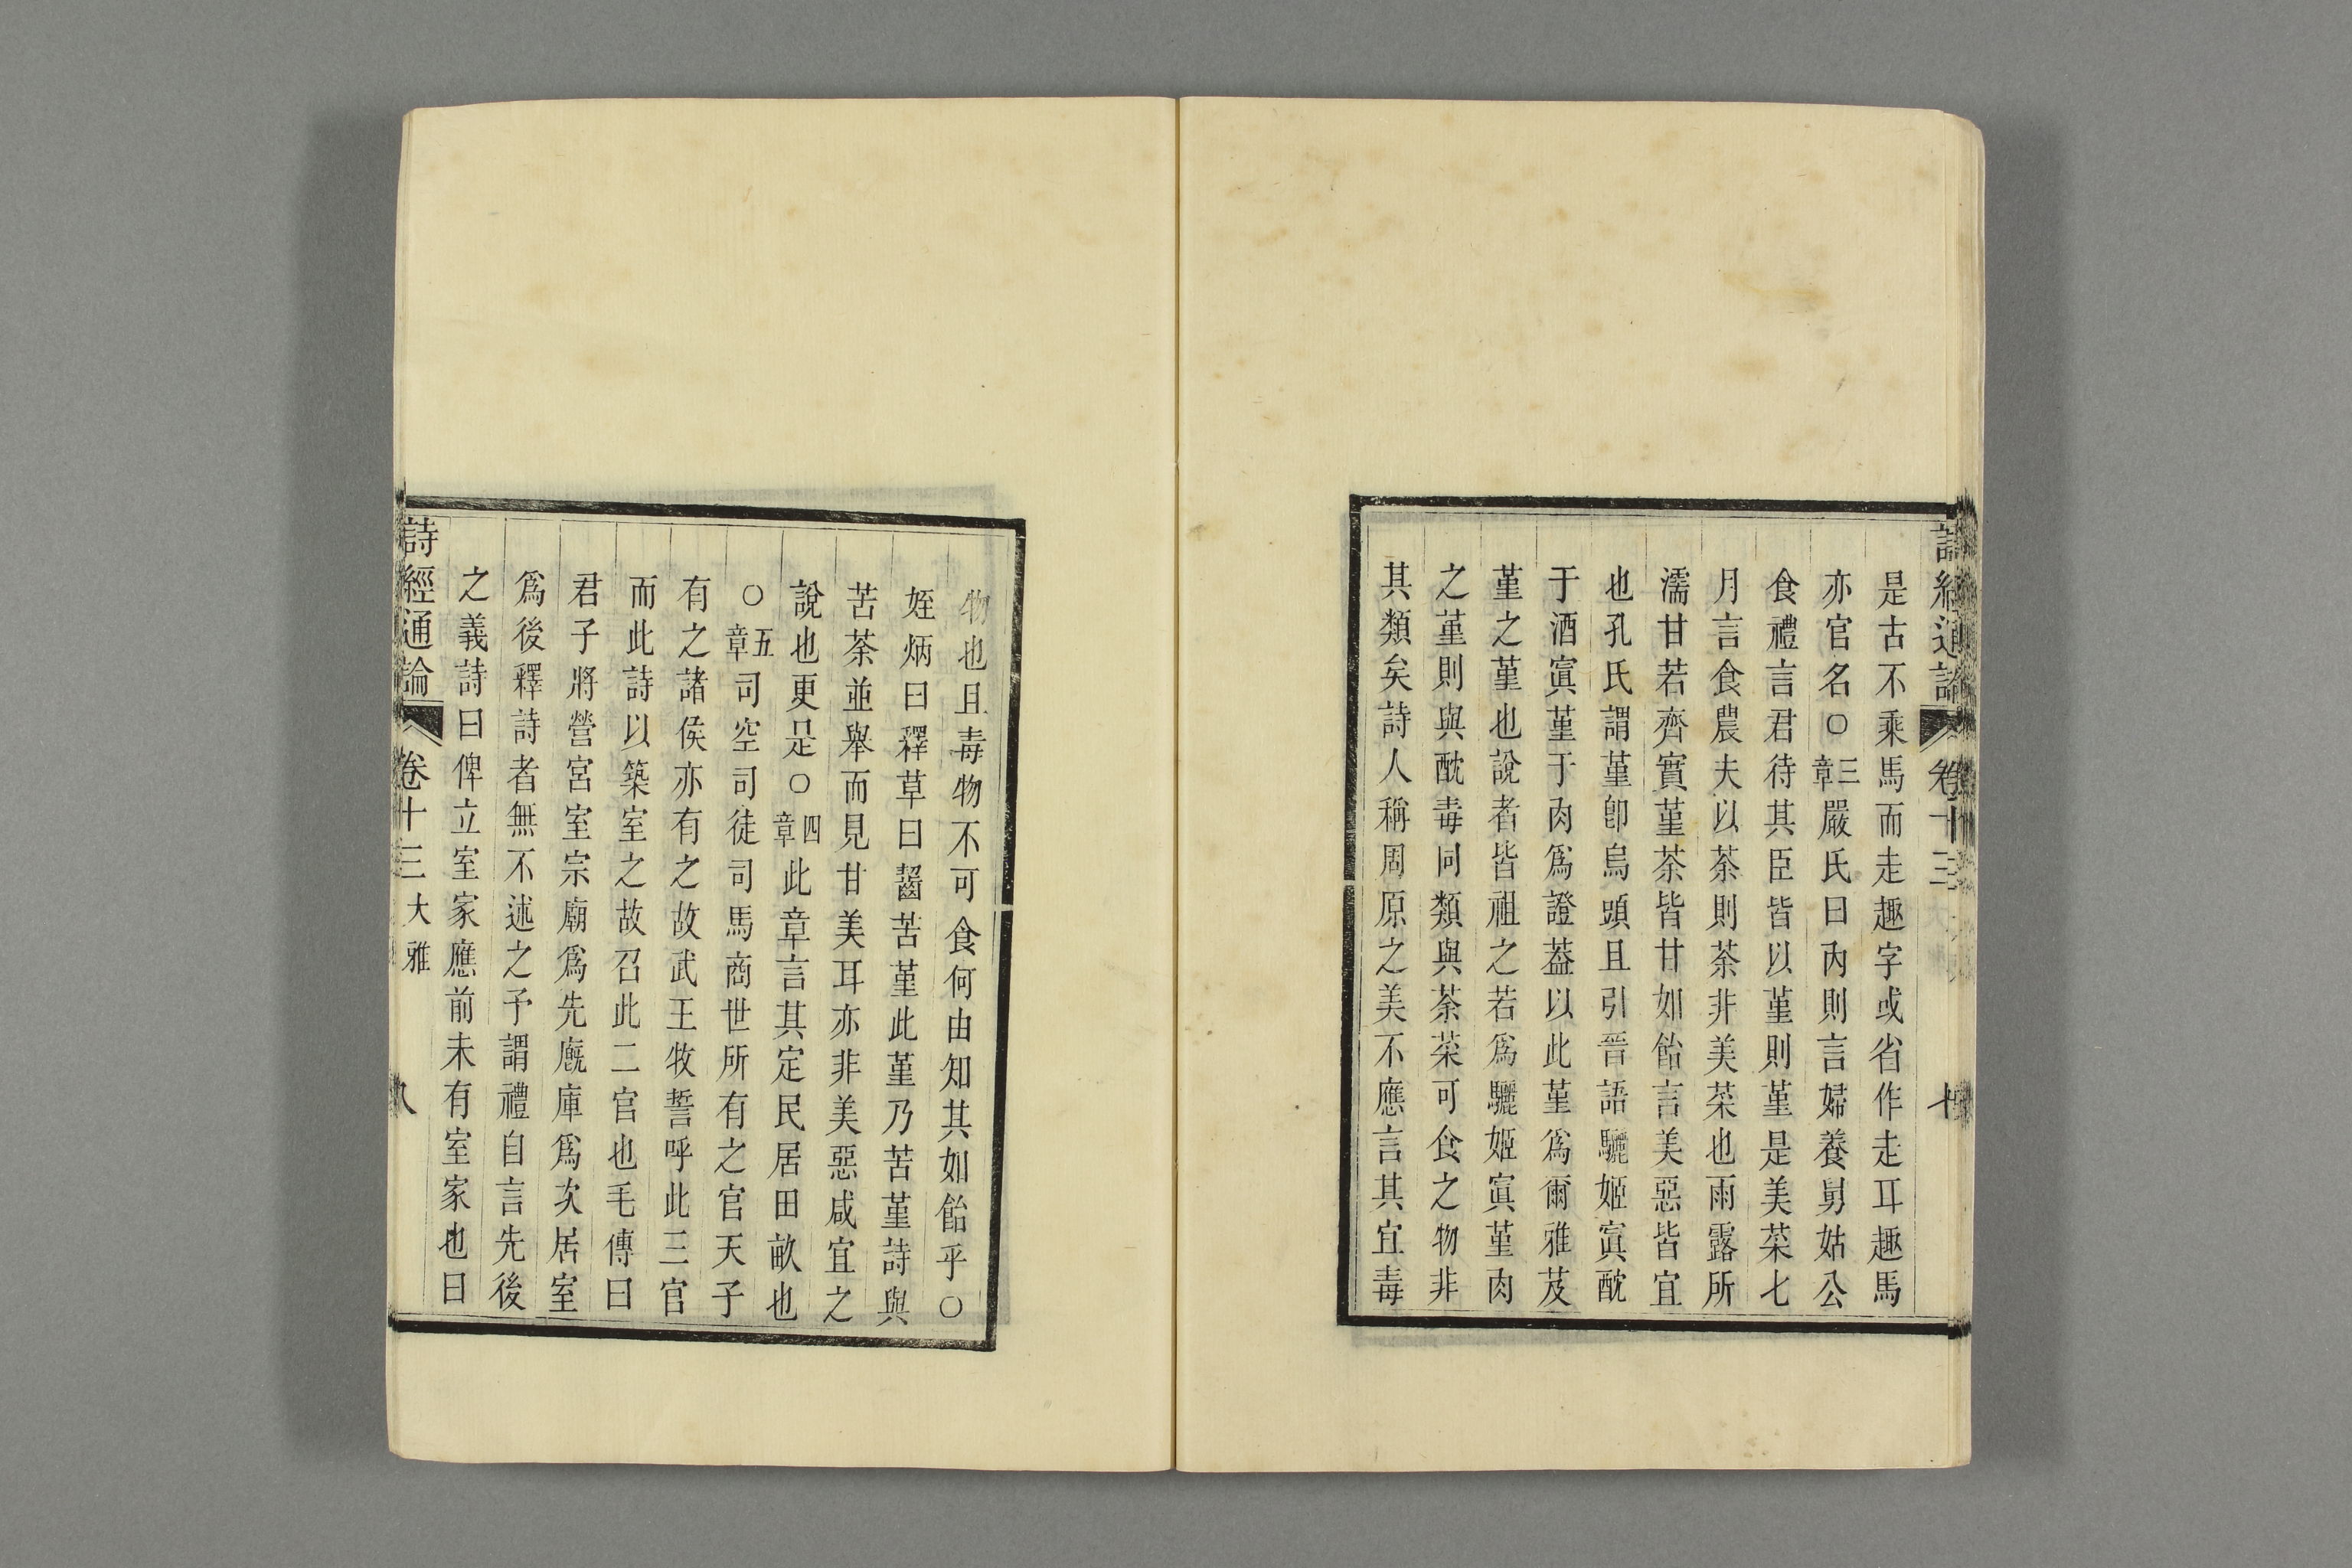 詩經通論 卷十三 七
是古不乘馬而走趣字或省作走耳趣馬
亦官名○三章嚴氏曰內則言婦養舅姑公
食禮言君待其臣皆以堇則堇是美菜七
月言食農夫以荼則荼非美菜也雨露所
濡甘若齊實堇荼皆甘如飴言美惡皆宜
也孔氏謂堇卽烏頭且引晉語驪姬寘酖
于酒寘堇于肉爲證葢以此堇爲爾雅芨
堇之堇也說者皆祖之若爲驪姬寘堇肉
之堇則與酖毒同類與荼菜可食之物非
其類矣詩人稱周原之美不應言其宜毒
物也且毒物不可食何由知其如飴乎○
姪炳曰釋草曰齧苦堇此堇乃苦堇詩與
苦荼並舉而見甘美耳亦非美惡咸宜之
說也更是○四章此章言其定民居田畝也
○五章司空司徒司馬商世所有之官天子
有之諸侯亦有之故武王牧誓呼此三官
而此詩以築室之故召此二官也毛傳曰
君子將營宮室宗廟爲先廐庫爲次居室
爲後釋詩者無不述之予謂禮自言先後
之義詩曰俾立室家應前未有室家也曰
詩經通論 卷十三 大雅 八